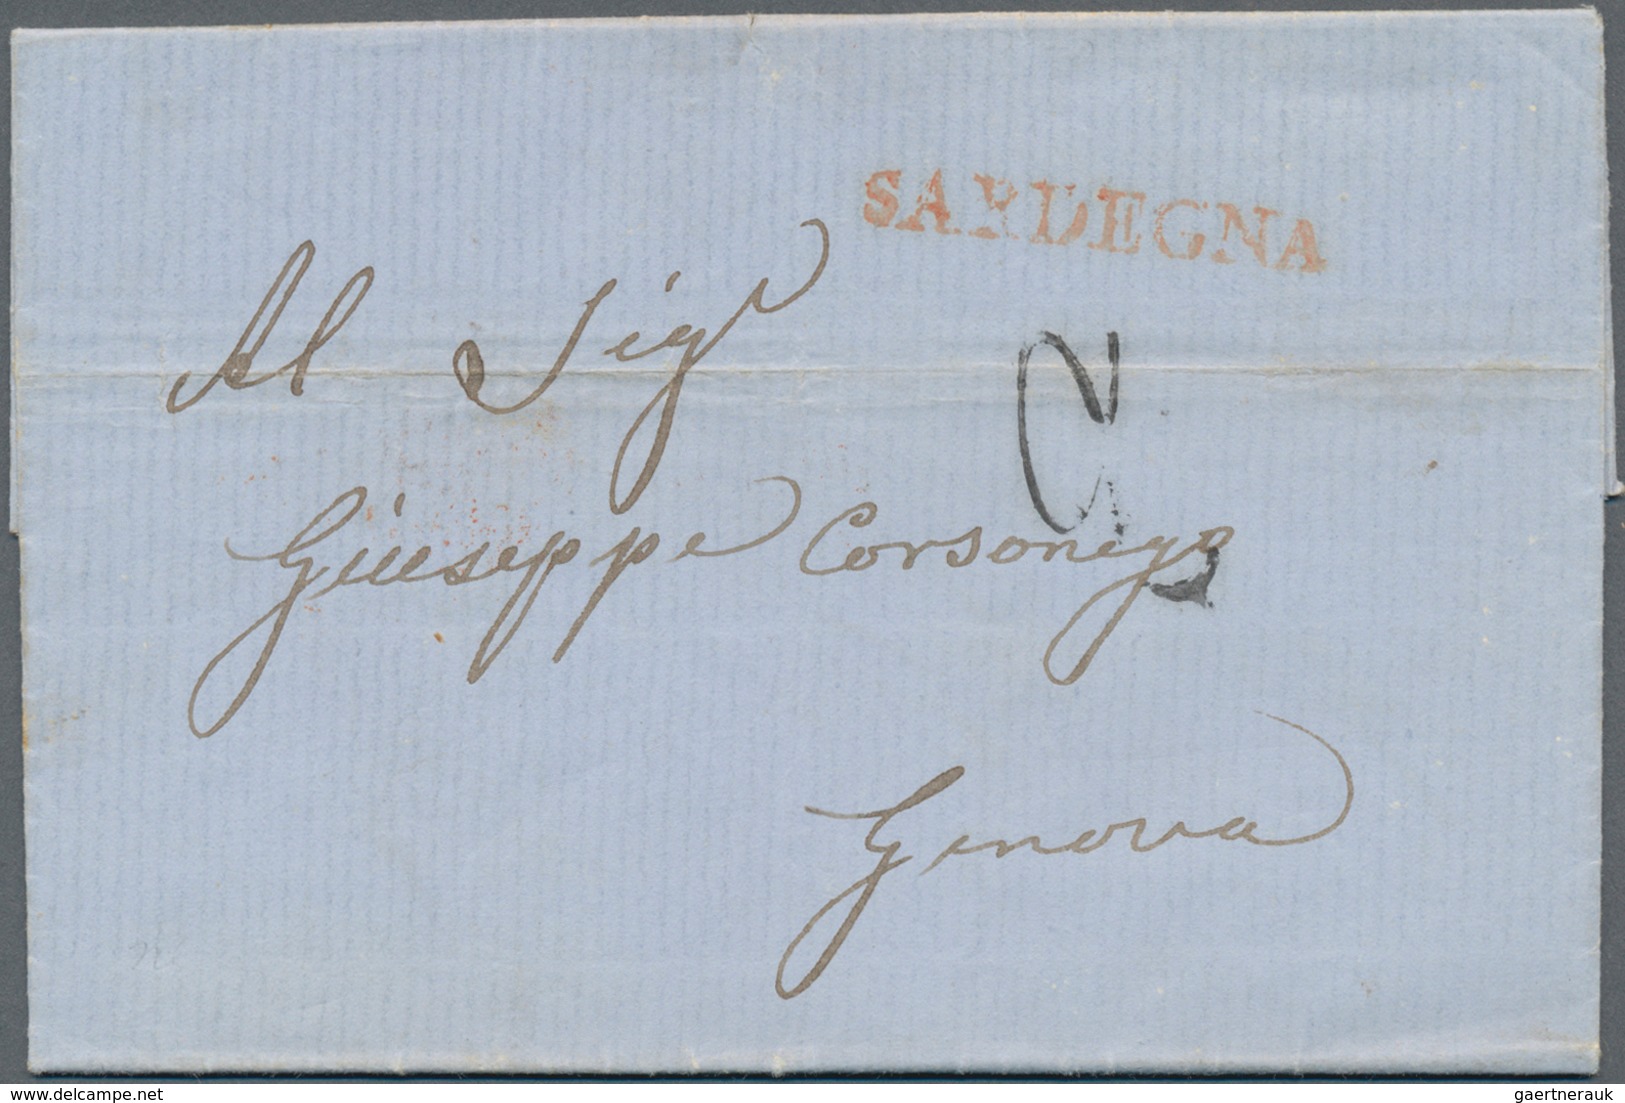 SARDEGNA
Al Sigr
Giuseppe Corsonego
Genova
www.delcampe.net
gaertnerauk